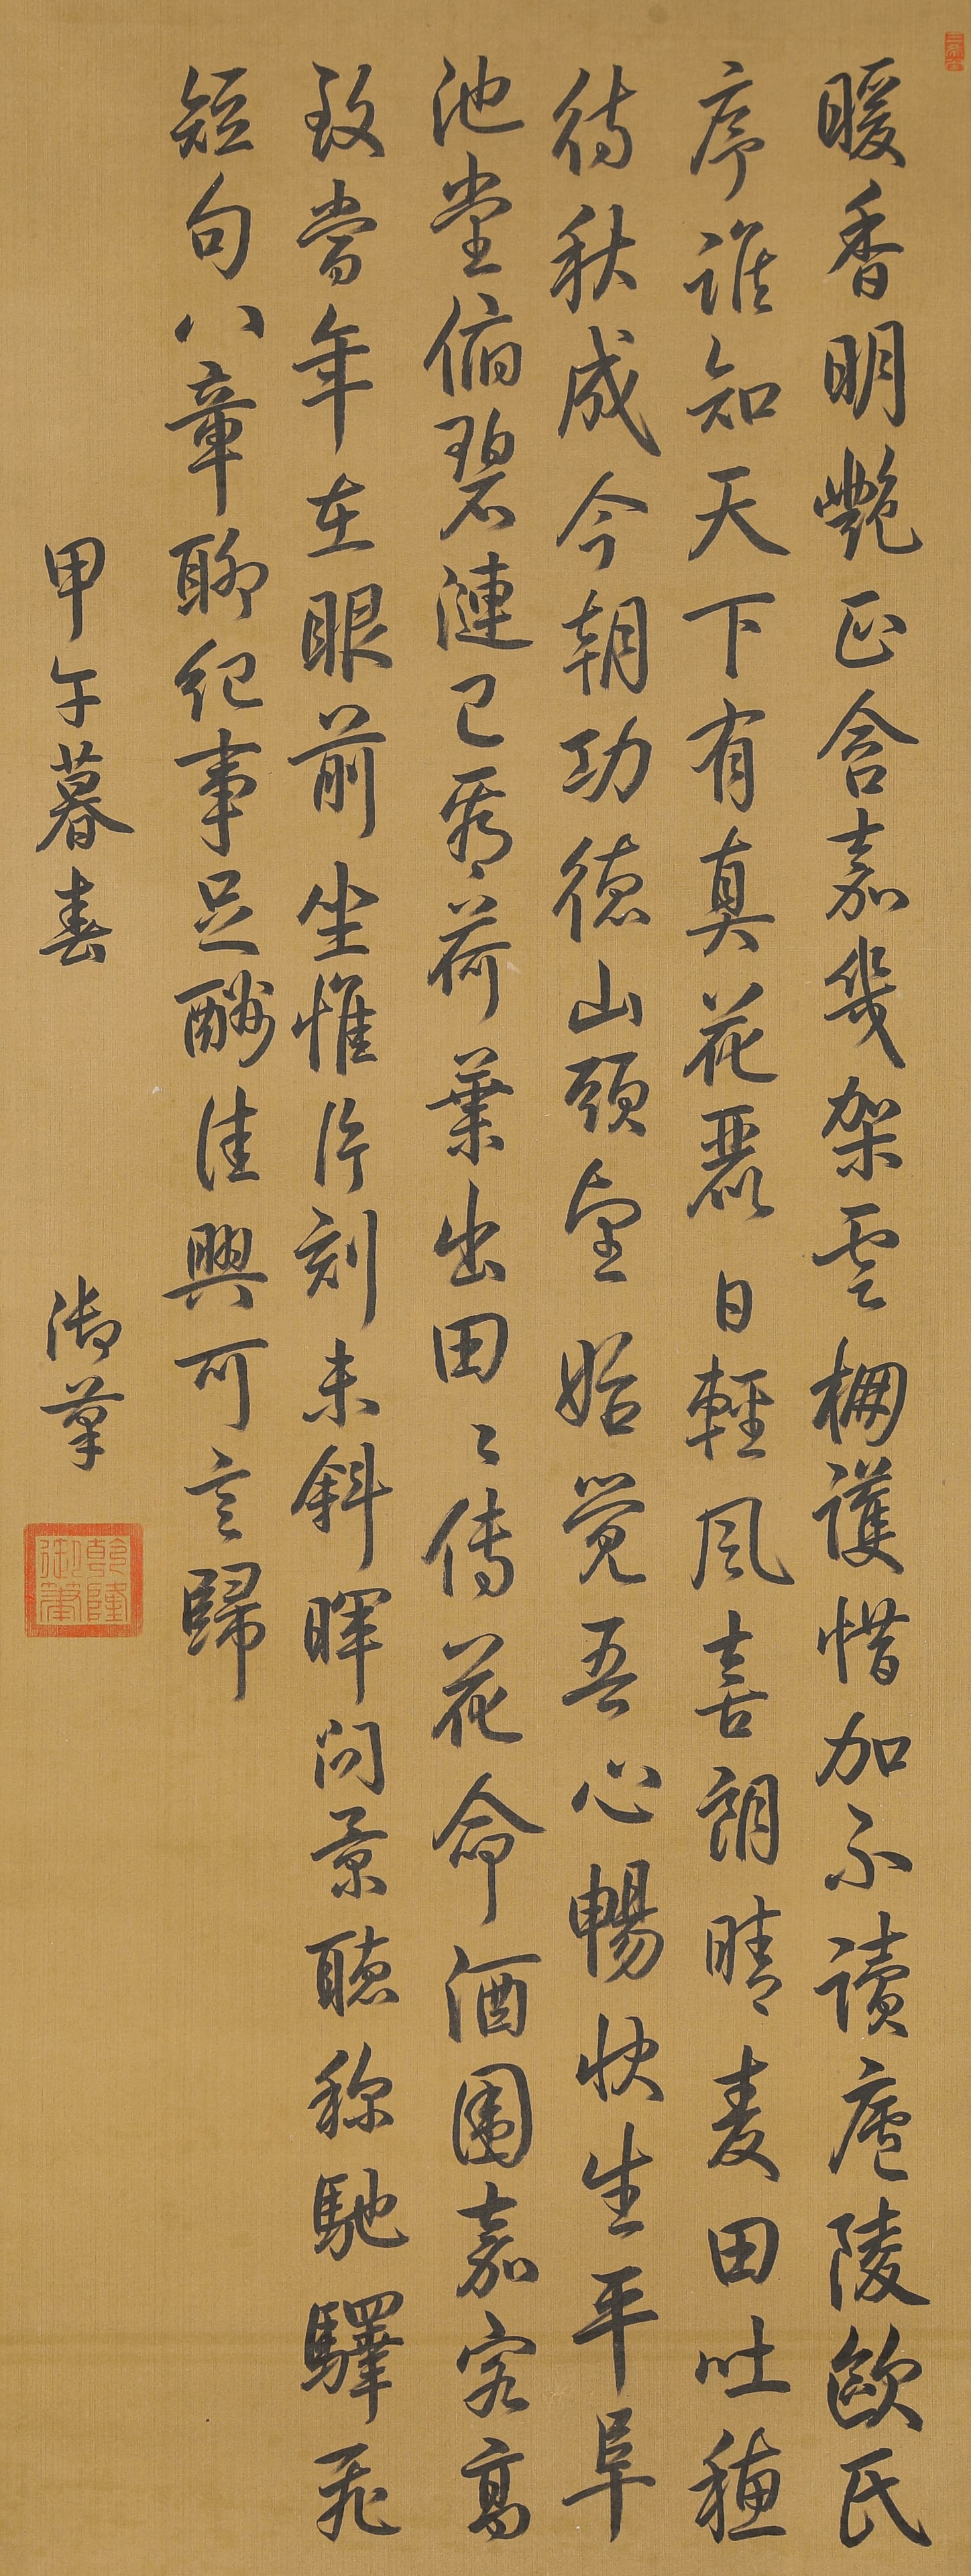 暖香明艷正含嘉幾架雲棚護惜加不讀廬陵歐氏
序誰知天下有真花麗日輕風喜朗晴麦田吐穗
待秋成今朝功德山頭望始覺吾心暢快生平阜
池堂俯碧漣已看荷葉出田〻傳花命酒围嘉客高
致當年在眼前坐惟片刻未斜暉问景聽称馳驛飛
短句八章聊紀事足酬佳興可言歸
甲午暮春
御筆
乾隆御筆
三希堂